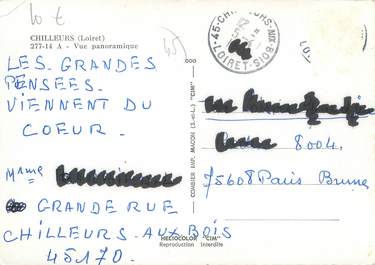 10 €
CHILLEURS (Loiret)
277-14 A - Vue panoramique
45
LES GRANDES
PENSEES.
VIENNENT DU
COEUR.
Mme
GRANDE RUE
CHILLEURS.AUX.BOIS
45170.
COMBIER IMP. MACON (S.-et-L.) "CIM"
HELIOCOLOR "CIM"
Reproduction Interdite
45-CHILLEURS-AUX-BOIS
LOIRET
8004.
75608 Paris Brune